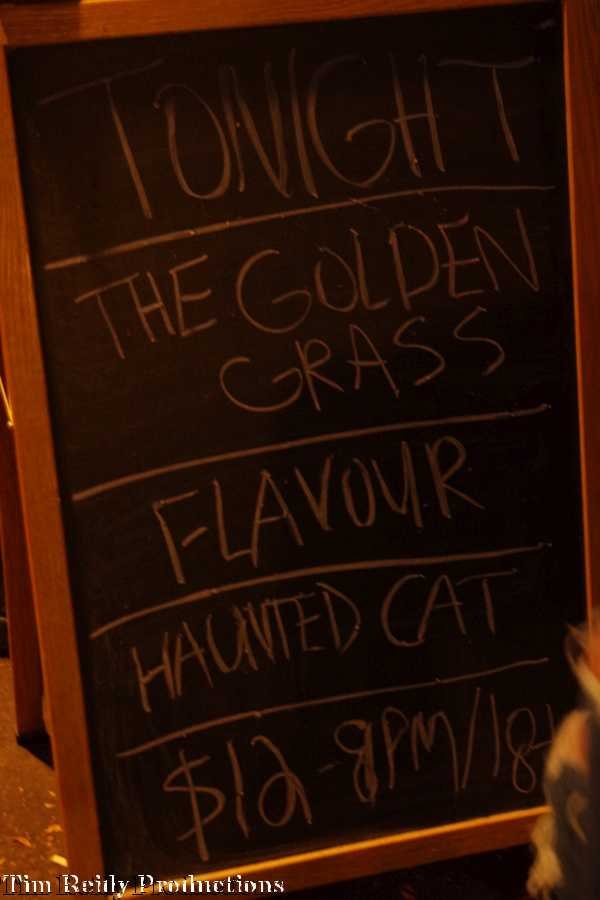 TONIGHT
THE GOLDEN
GRASS
FLAVOUR
HAUNTED CAT
$12-8PM/18+
Tim Reidy Productions